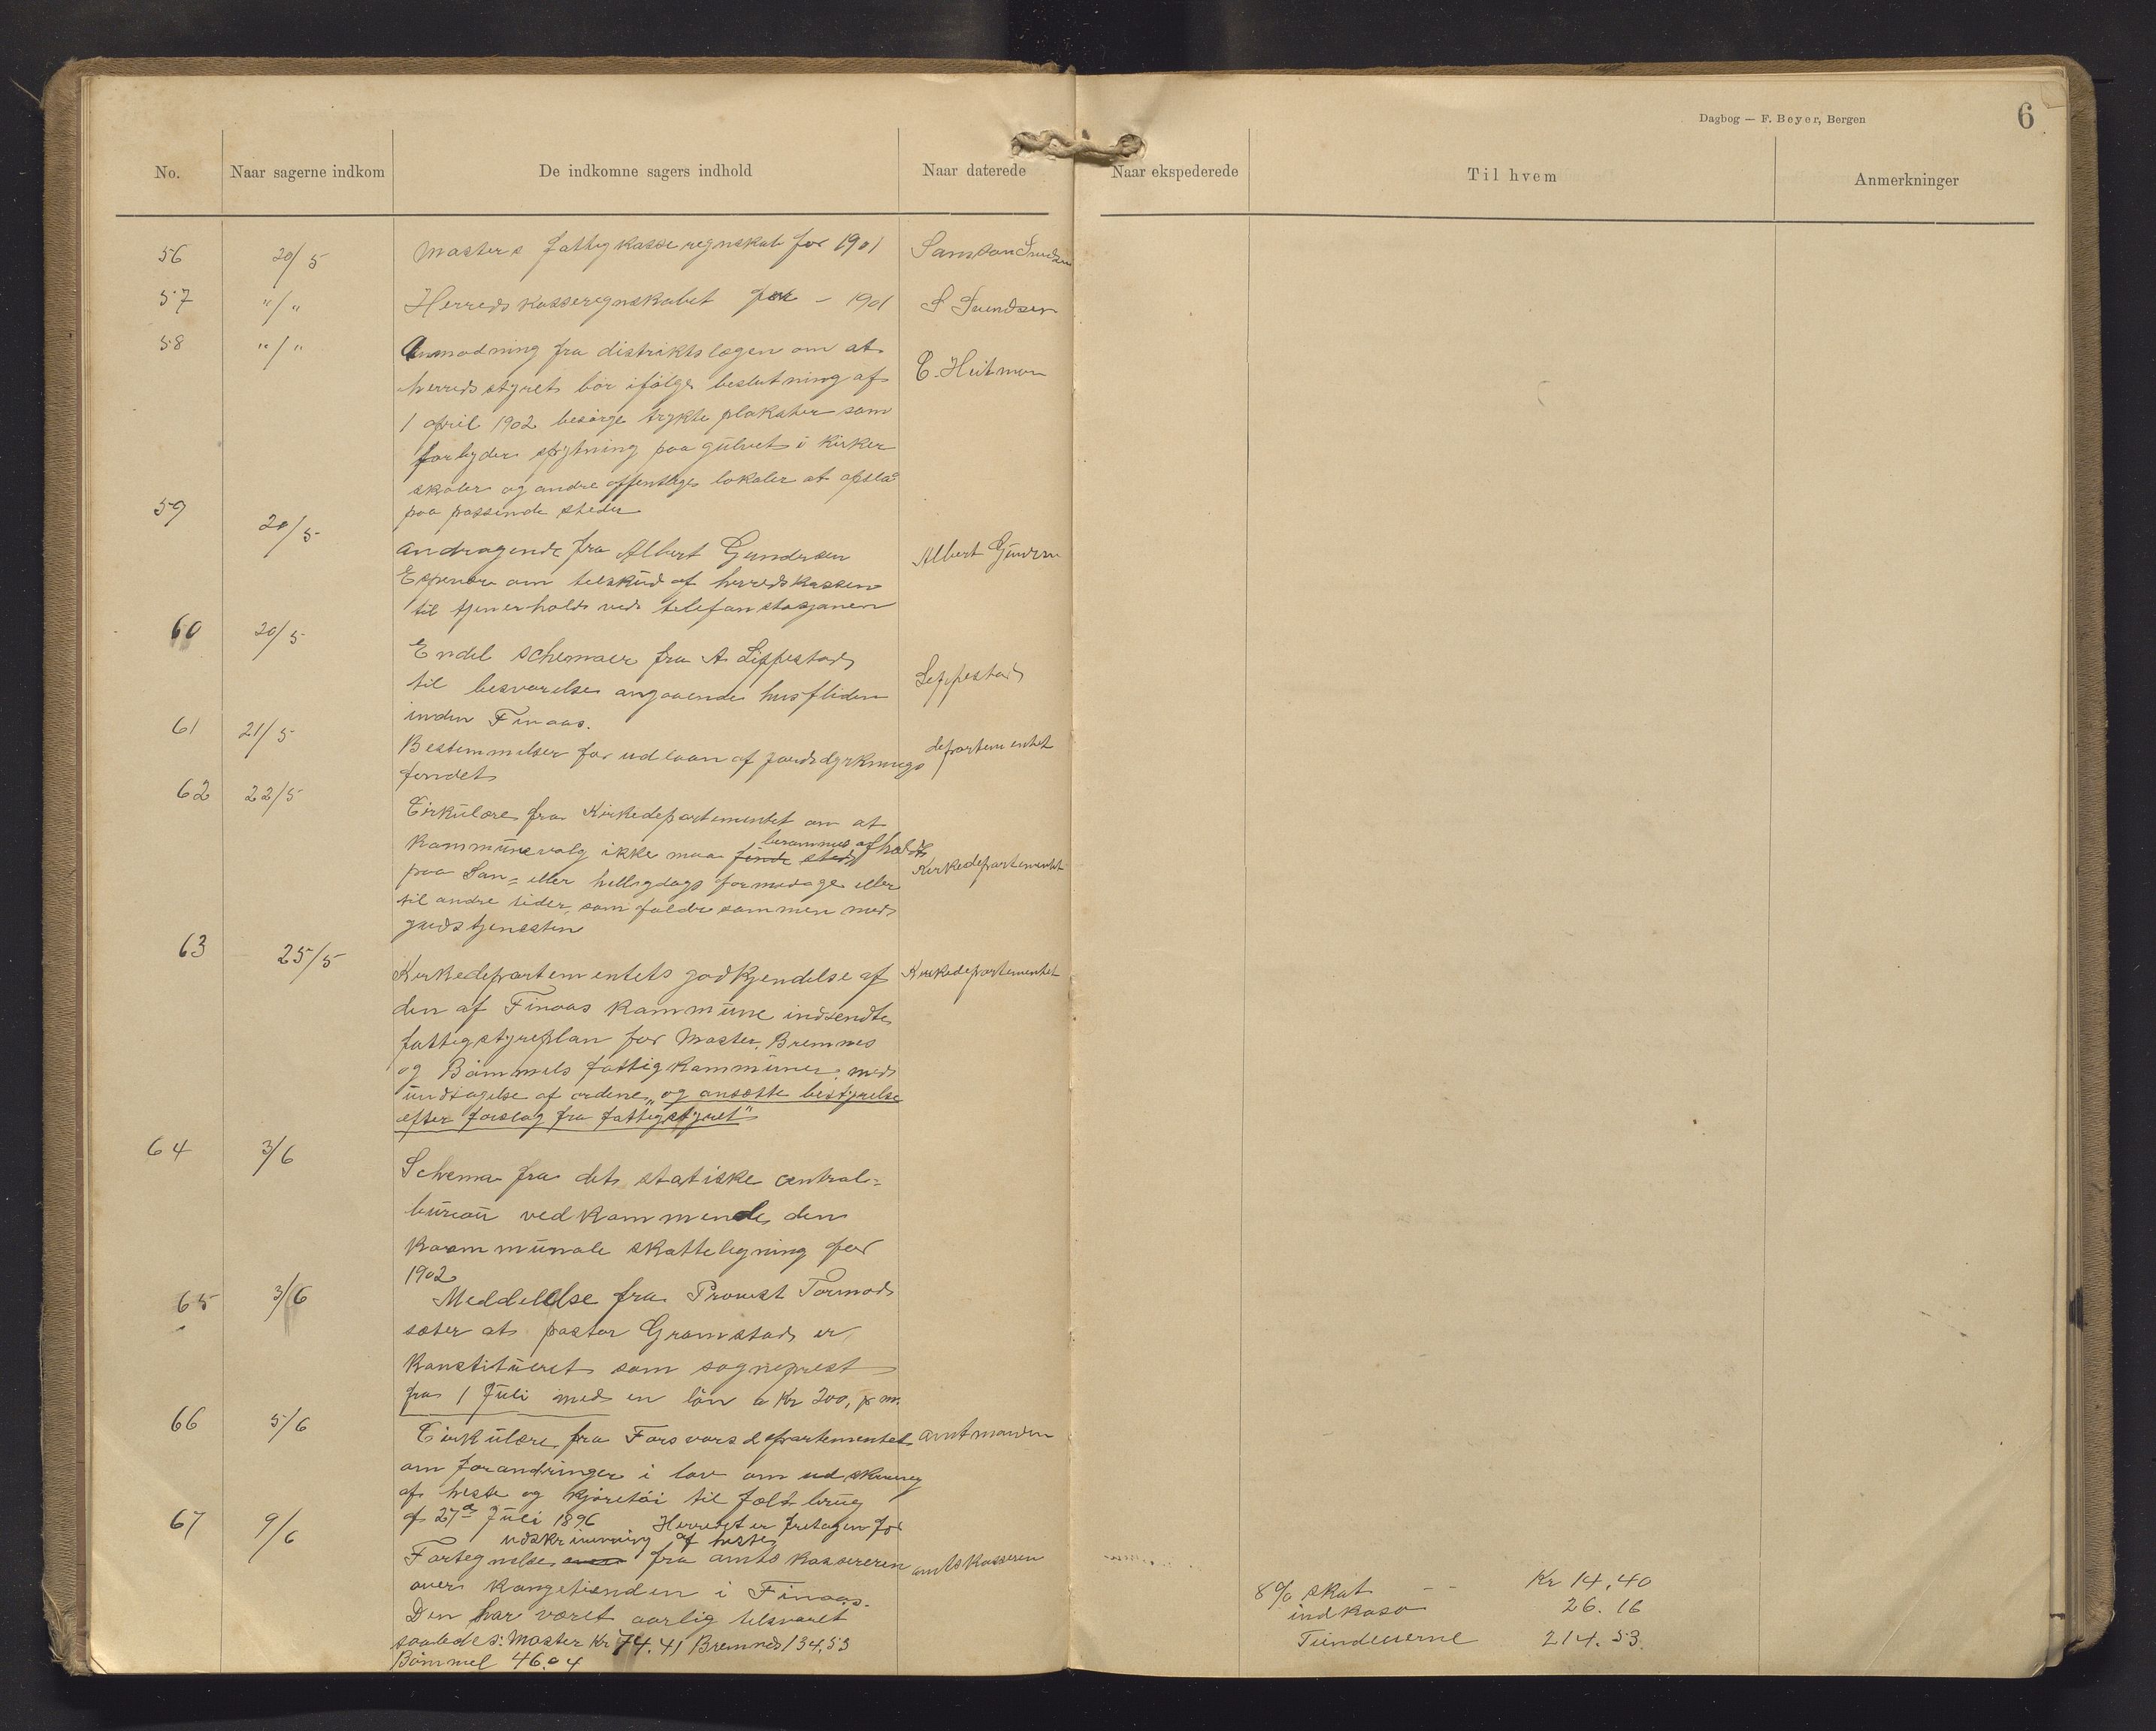 Dagbog — F. Beyer, Bergen
6
No. Naar sagerne indkom De indkomne sagers indhold Naar daterede Naar ekspederede Til hvem Anmerkninger
56 20/5 Mosters fattigkasseregnskab for 1901
57 "/" Herredskasseregnskabet for – 1901
58 "/" Anmodning fra distriktslægen om at C. Heitman
herredsstyret bör ifölge beslutning af
1 april 1902 besörge trykte plakater som
forbyder spytning paa gulvet i Kirker
skoler og andre offentlige lokaler at opslaa
paa passende steder
59 20/5 Andragende fra Albert Gundersen Albert
Espevær om tilskud af herredskassen
til tjenerhold ved telefonstasjonen
60 20/5 Endel schemaer fra A. Lippestad Lippestad
til besvarelse angaaende husfliden
inden Finaas.
61 21/5 Bestemmelser for udlaan af jordsdyrknings departementet
fondet
62 22/5 Cirkulære fra Kirkedepartementet om at
berammes afholdt
Kommunevalg ikke maa finde sted Kirkedepartementet
paa Søn= eller helligdags formidage eller
til andre tider, som falder sammen med
gudstjenesten
63 25/5 Kirkedepartementets godkjendelse af Kirkedepartementet
den af Finaas Kommune indsendte
fattigstyreplan for Moster, Bremnes
og Bömmels fattigkommuner, med
undtagelse af ordene "og ansætte bestyrelse
efter forslag fra fattigstyret"
64 3/6 Schema fra det statiske central=
bureau vedkommende den
kommunale skatteligning for
1902
65 3/6 Meddelelse fra Provst Tormod
sæter at pastor Gramstad er
Konstitueret som sogneprest
fra 1 Juli med en lön a Kr 200, pr m.
66 5/6 Cirkulære fra Forsvarsdepartementet amtmanden
om forandringer i lov om udskrivning
af heste og Kjöretöi til feltbrug
af 27de Juli 1896 Herredet er fretagen for
udskrivning af heste
67 9/6 Fortegnelse fra amtskassereren amtskasseren
over Kongetienden i Finaas.
Den har været aarlig tilsvaret
saaledes: Moster Kr 74.41 Bremnes 134,53
Bömmel 46.04
8% skat – – Kr 14.40
indkaso 26.16
214.53.